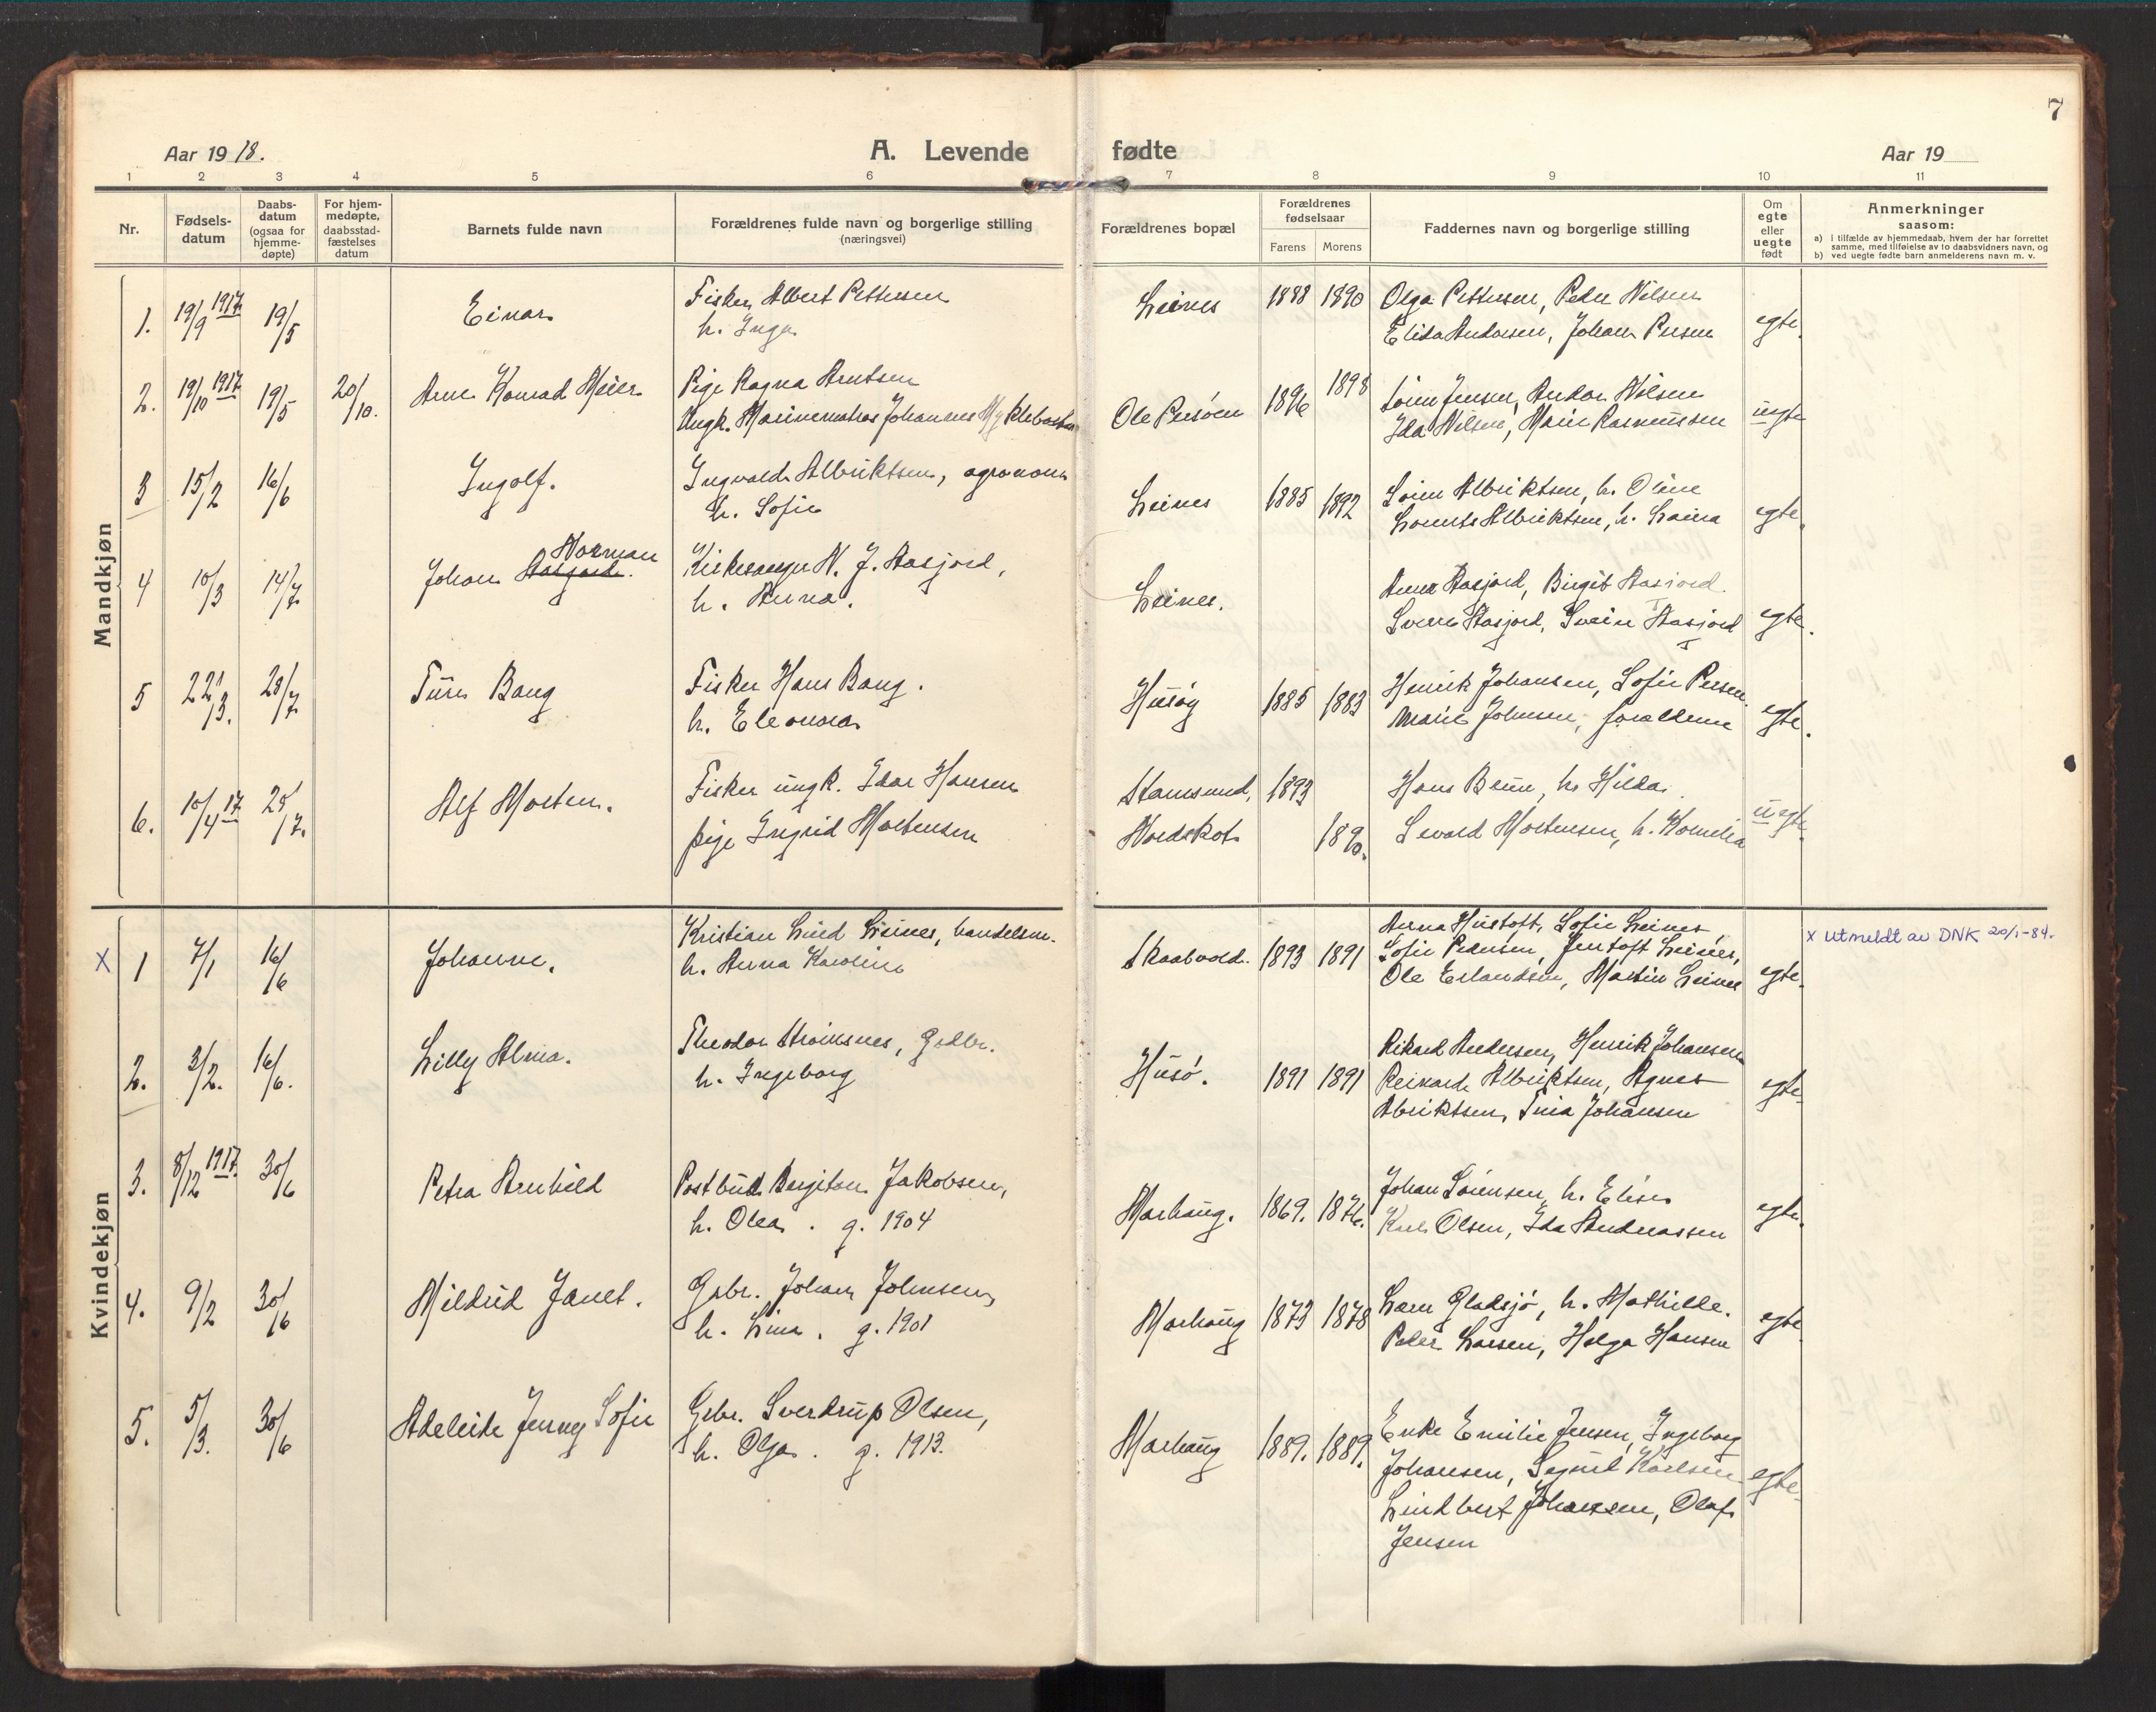 7
Aar 1918.
A. Levende fødte
Aar 19
1 2 3 4 5 6 7 8 9 10 11
Nr.
Fødsels-
datum
Daabs-
datum
(ogsaa for
hjemme-
døpte)
For hjem-
medøpte,
daabsstad-
fæstelses
datum
Barnets fulde navn
Forældrenes fulde navn og borgerlige stilling
(næringsvei)
Forældrenes bopæl
Forældrenes
fødselsaar
Farens Morens
Faddernes navn og borgerlige stilling
Om
egte
eller
uegte
født
Anmerkninger
saasom:
a) i tilfælde av hjemmedaab, hvem der har forrettet
samme, med tilføielse av to daabsvidners navn, og
b) ved uegte fødte barn anmelderens navn m. v.
Mandkjøn
1. 19/9 1917 19/5 Einar Fisker Albert Pettersen Leines 1888 1890 Olga Pettersen, Peder Nilsen egte.
h. Inga Elida Andersen, Johan Persen
2. 19/10 1917 19/5 20/10. Arne Konrad Meier Pige Ragna Arntsen Ole Persöen 1896 1898 Sören Jensen, Andor Nilsen uegte
Ungk. Marinematros Johannes Myklebostad Ida Nilsen, Marie Rasmussen
3 15/2 16/6 Ingolf. Ingvald Albriktsen, agronom Leines 1885 1892 Sören Albriktsen, h. Oline egte.
h. Sofie Lorents Albriktsen, h. Laina
4 10/3 14/7 Johan Aasjord. Norman Kirkesanger N. J. Aasjord, Leines. Anna Aasjord, Birgit Aasjord egte.
h. Anna. Sverre Aasjord, Svein Aasjord
5 22/3. 28/7 Ture Bang Fisker Hans Bang. Husöy 1885 1883 Henrik Johansen, Sofie Persen egte.
h. Eleonora Marie Johnsen, forældrene
6. 10/4 17 28/7. Alf Morten. Fisker ungk. Idar Hansen Stamsund, 1893 Hans Brun, h. Hilda. uegte.
pige Ingrid Mortensen Nordskot 1890. Sevald Mortensen, h. Kornelia
Kvindekjøn
X 1 7/1 16/6 Johanne. Kristian Lind Leines, handelsm. Skaalvold. 1893 1891 Anna Hustoft, Sofie Leines egte. x utmeldt av DNK 20/1-84.
h. Anna Karoline Sofie Pedersen, Jentoft Leines,
Ole Erlandsen, Martin Leines
2. 3/2. 16/6. Lilly Alma. Theodor Strömsnes, Gaardbr. Husö. 1891 1891 Rikard Andersen, Henrik Johansen egte
h. Ingeborg Reinard Albriktsen, Agnes
Albriktsen, Tina Johansen
3. 8/12 1917. 30/6 Petra Arnhild Postbud Bergiton Jakobsen, Marhaug. 1869. 1876. Johan Sörensen, h. Elise egte.
h. Olea. g. 1904 Karl Olsen, Ida Andreassen
4. 9/2 30/6 Mildrid Janet. Gbr. Johan Johnsen, Marhaug 1873 1878 Lars Gladsjö, h. Mathilde. egte
h. Lina. g. 1901 Peder Larsen, Helga Hansen
5. 5/3. 30/6 Adeleide Jenny Sofie Gbr. Sverdrup Olsen, Marhaug 1889. 1889. Enke Emilie Jensen, Ingeborg egte
h. Olga. g. 1913. Johansen, Sigurd Karlsen
Lindbert Johansen, Olaf
Jensen